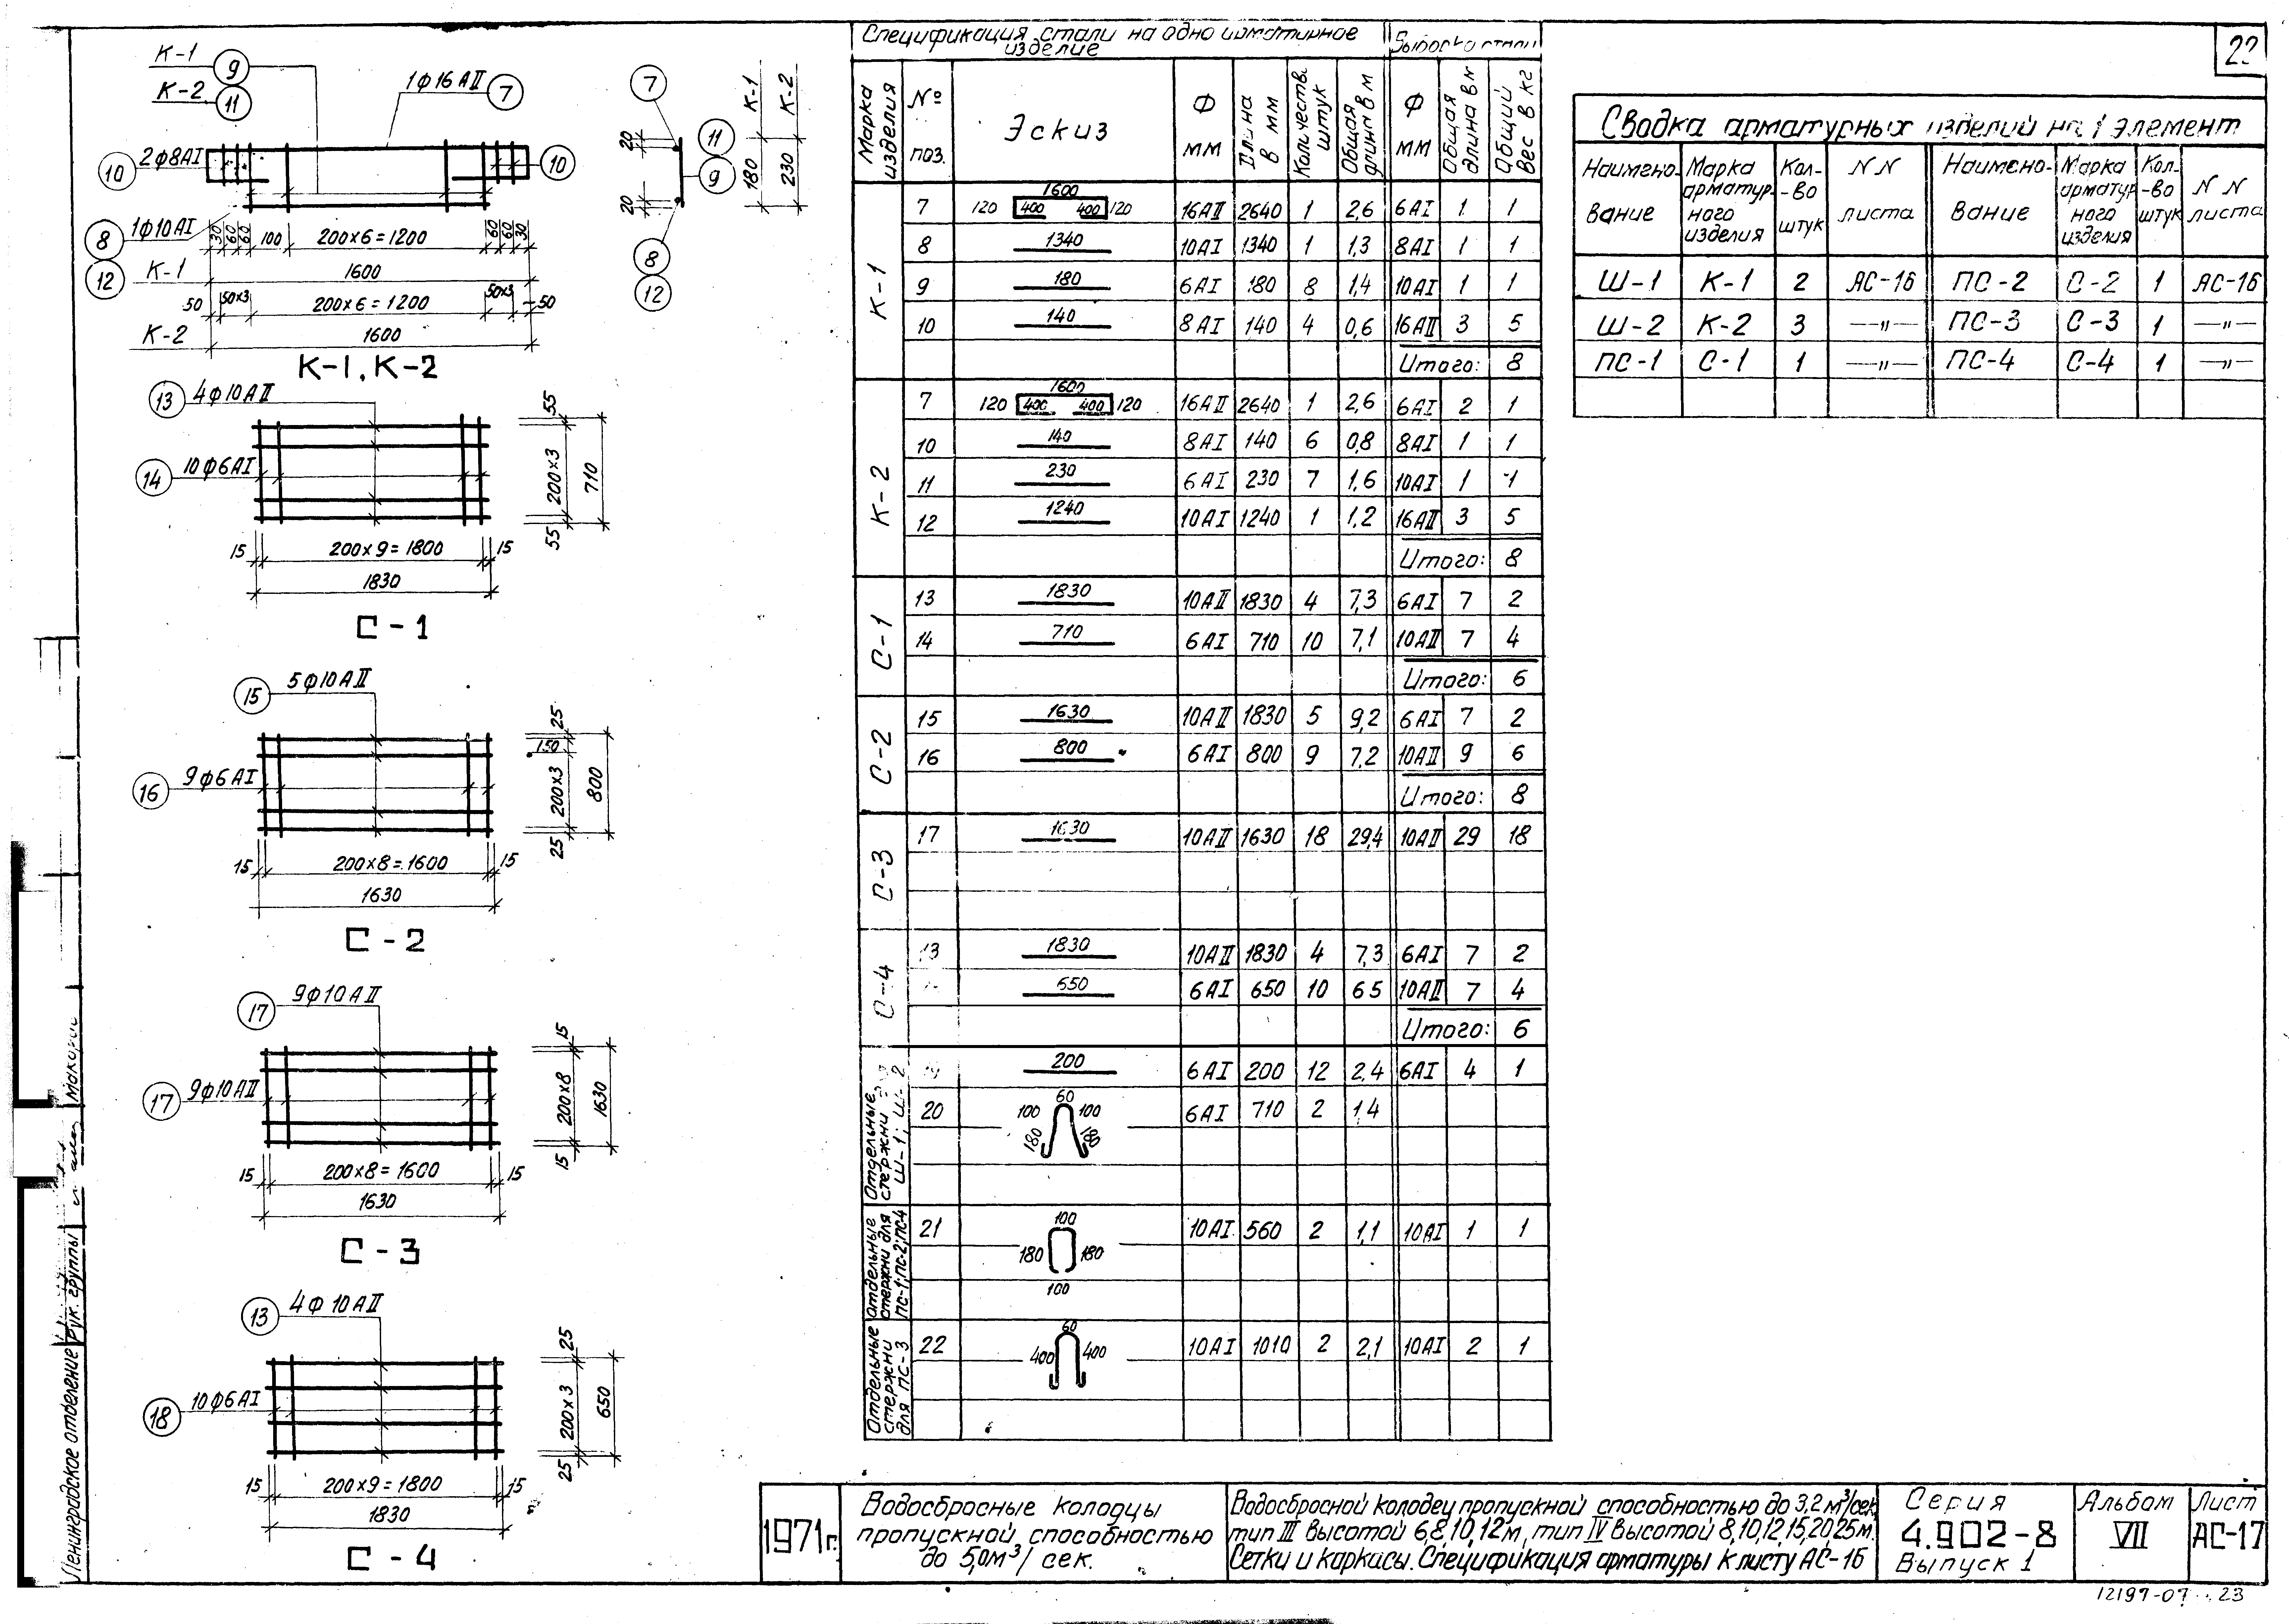 К-1
9
К-2
11
1ф16АII
7
10
2ф8АI
10
8
1ф10АI
12
30
60
60
100
200х6=1200
60
60
30
К-1
1600
50
50х3
200х6=1200
50х3
50
К-2
1600
К-1, К-2
7
20
11
9
20
8
12
К-1
К-2
180
230
13
4ф10АII
14
10ф6АI
55
200х3
710
55
15
200х9=1800
15
1830
С-1
15
5ф10АII
16
9ф6АI
25
150
200х3
800
25
15
200х8=1600
15
1630
С-2
17
9ф10АII
17
9ф10АII
15
200х8
1630
15
15
200х8=1600
15
1630
С-3
13
4ф10АII
18
10ф6АI
25
200х3
650
25
15
200х9=1800
15
1830
С-4
Спецификация стали на одно арматурное изделие
Выборка стали
Марка изделия
№ поз.
Эскиз
Ф мм
Длина в мм
Количеств. штук
Общая длина в м
Ф мм
Общая длина в м
Общий вес в кг
К-1
7 120 1600 400 400 120 16АII 2640 1 2,6 6АI 1 1
8 1340 10АI 1340 1 1,3 8АI 1 1
9 180 6АI 180 8 1,4 10АI 1 1
10 140 8АI 140 4 0,6 16АII 3 5
Итого: 8
К-2
7 120 1600 400 400 120 16АII 2640 1 2,6 6АI 2 1
10 140 8АI 140 6 0,8 8АI 1 1
11 230 6АI 230 7 1,6 10АI 1 1
12 1240 10АI 1240 1 1,2 16АII 3 5
Итого: 8
С-1
13 1830 10АII 1830 4 7,3 6АI 7 2
14 710 6АI 710 10 7,1 10АII 7 4
Итого: 6
С-2
15 1630 10АII 1830 5 9,2 6АI 7 2
16 800 6АI 800 9 7,2 10АII 9 6
Итого: 8
С-3
17 1630 10АII 1630 18 29,4 10АII 29 18
С-4
13 1830 10АII 1830 4 7,3 6АI 7 2
650 6АI 650 10 6 5 10АII 7 4
Итого: 6
Отдельные стержни Ш-1; Ш-2
200 6АI 200 12 2,4 6АI 4 1
20 60 100 100 180 180 6АI 710 2 1,4
Отдельные стержни для ПС-1;ПС-2;ПС-4
21 100 180 180 100 10АI 560 2 1,1 10АI 1 1
Отдельные стержни для ПС-3
22 60 400 400 10АI 1010 2 2,1 10АI 2 1
Сводка арматурных изделий на 1 элемент
Наимено-вание
Марка арматур-ного изделия
Кол-во штук
NN листа
Наимено-вание
Марка арматур ного изделия
Кол-во штук
NN листа
Ш-1 К-1 2 АС-16 ПС-2 С-2 1 АС-16
Ш-2 К-2 3 —"— ПС-3 С-3 1 —"—
ПС-1 С-1 1 —"— ПС-4 С-4 1 —"—
Ленинградское отделение
Рук. группы
1971г.
Водосбросные колодцы
пропускной способностью
до 5,0м³/сек.
Водосбросной колодец пропускной способностью до 3,2м³/сек,
тип III высотой 6,8,10,12м, тип IV высотой 8,10,12,15,20,25м.
Сетки и каркасы. Спецификация арматуры к листу АС-16
Серия
4.902-8
Выпуск 1
Альбом
VII
Лист
АС-17
12197-07 23